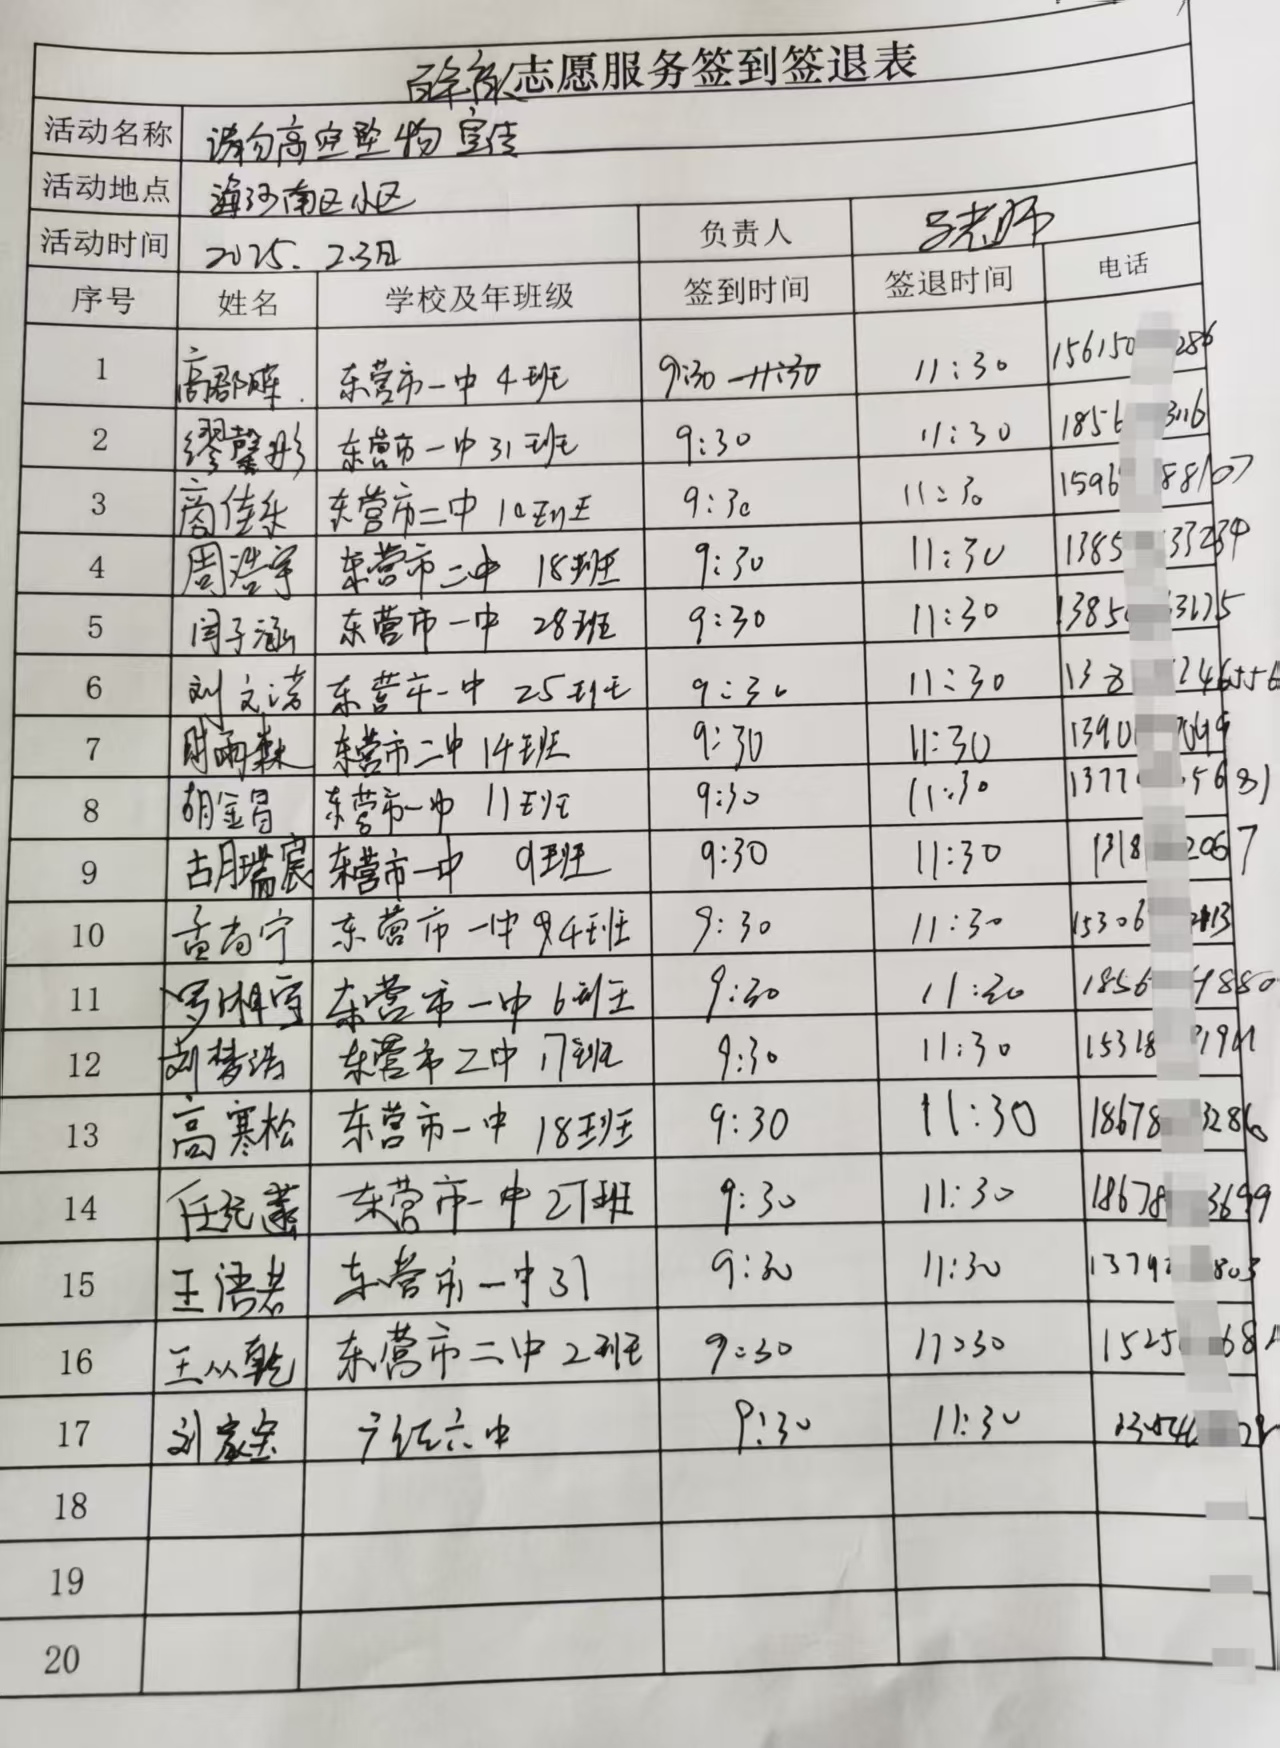 志愿服务签到签退表
活动名称 请勿高空坠物宣传
活动地点 海河南区小区
活动时间 2025. 2.3日 负责人 吕老师
序号 姓名 学校及年班级 签到时间 签退时间 电话
1 东营市一中 4班 9:30 11:30 11:30 15615 286
2 缪馨彤 东营市一中 31班 9:30 11:30 1856 3116
3 商佳乐 东营市二中 10班 9:30 11:30 1596 88107
4 周浩宇 东营市二中 18班 9:30 11:30 1385 33234
5 闫子涵 东营市一中 28班 9:30 11:30 1385 3175
6 刘文诺 东营市一中 25班 9:30 11:30 13 46556
7 东营市二中 14班 9:30 11:30 1390
8 胡金昌 东营市一中 11班 9:30 11:30 1377 5681
9 胡瑞宸 东营市一中 9班 9:30 11:30 1318 2067
10 孟尚宁 东营市一中 4班 9:30 11:30 15306 13
11 东营市一中 6班 9:30 11:30 1856 9880
12 刘梦浩 东营市二中 17班 9:30 11:30 15318
13 高寒松 东营市一中 18班 9:30 11:30 18678 3286
14 东营市一中 27班 9:30 11:30 18678 3699
15 王浩若 东营市一中 37 9:30 11:30 1379 803
16 王从乾 东营市二中 2班 9:30 11:30 1525 68
17 刘家宝 六中 9:30 11:30
18
19
20